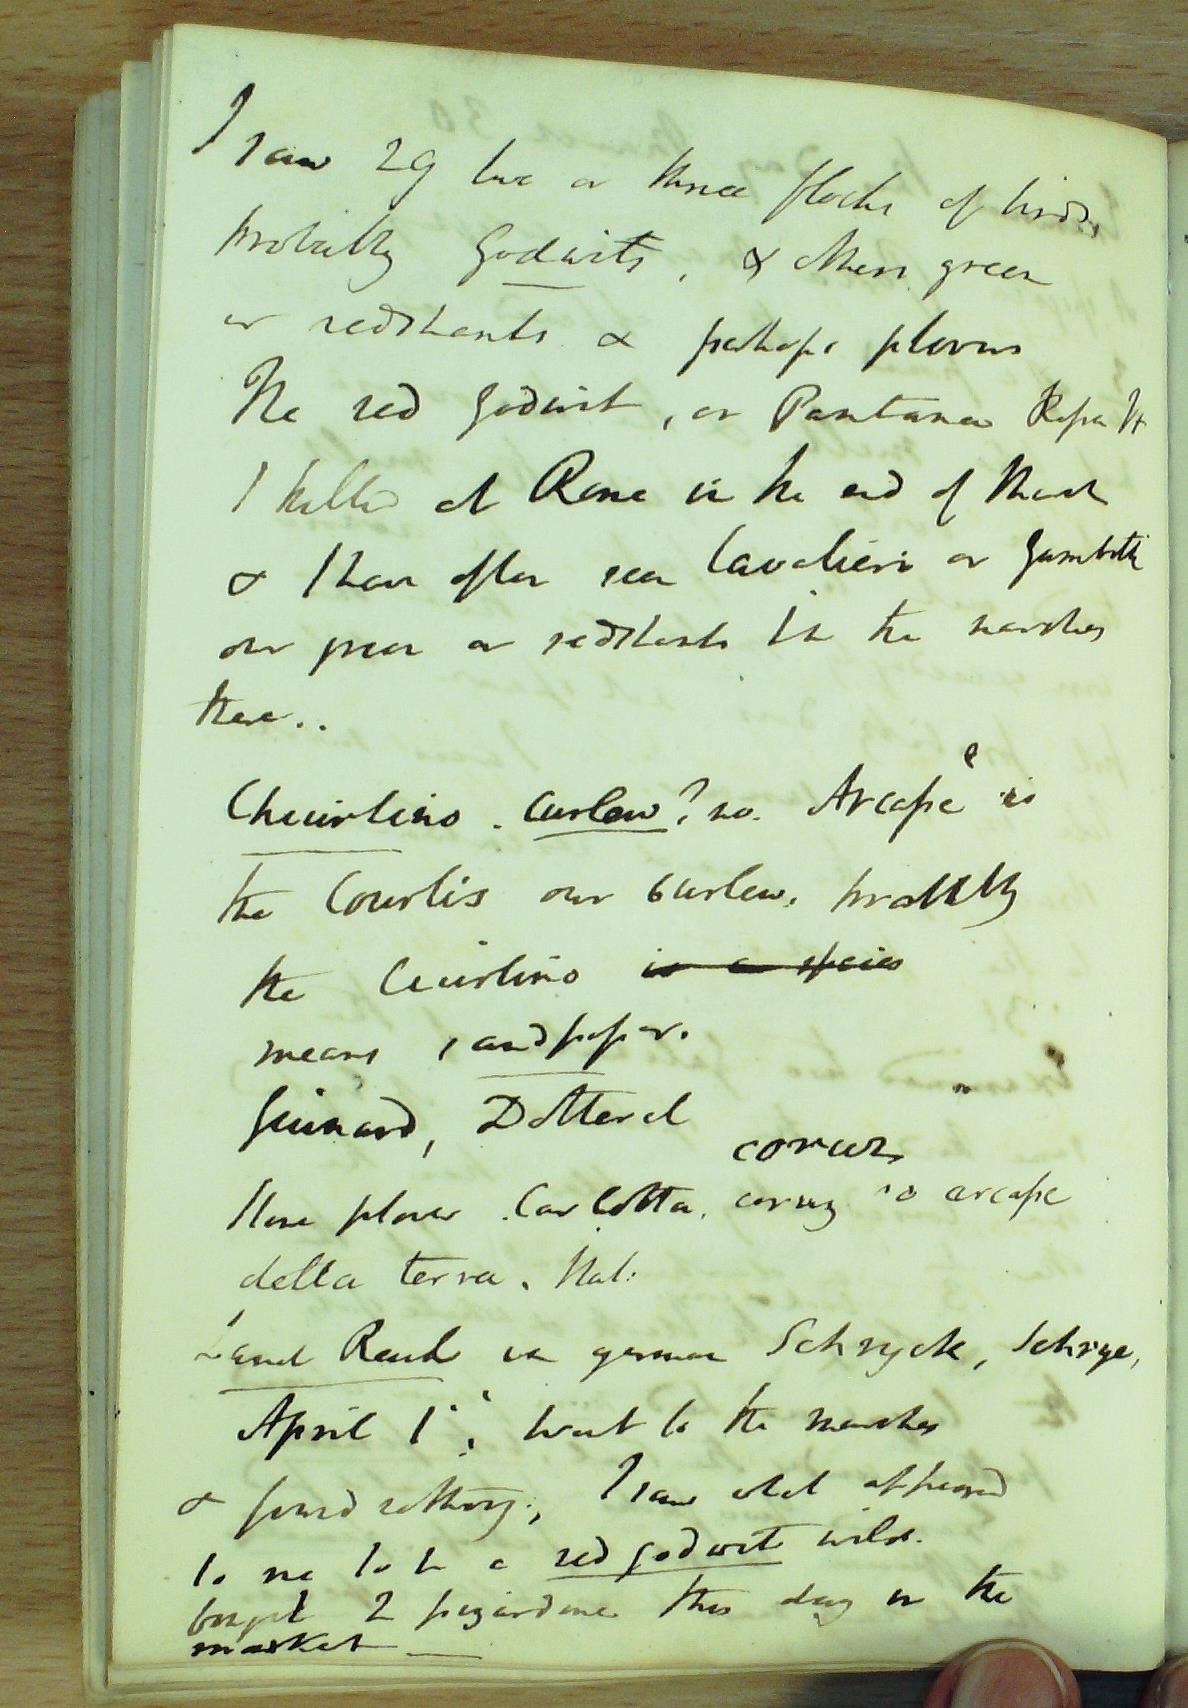 I saw 29 two or three flocks of birds,
probably Godwits, & others green
or redshanks & perhaps plovers
The red Godwit, or Pantana
I killed at Rome in the end of March
& I have often seen Cavalieri or Gambetti
our green or redshanks in the marshes
there..
Chiurlino. Curlew? no. Arcase is
the Courlis our curlew, probably
the Ciurlino is a species
means sandpiper.
Guinard, Dotterel
corruz
Stone plover. Car Cotta. corruz io arcase
della terra. Ital:
Land Rail in german Schryck, Schrye,
April 1st; Went to the marshes
& found nothing; I saw what appeared
to me to be a red godwit wild.
bought 2 this day in the
market —